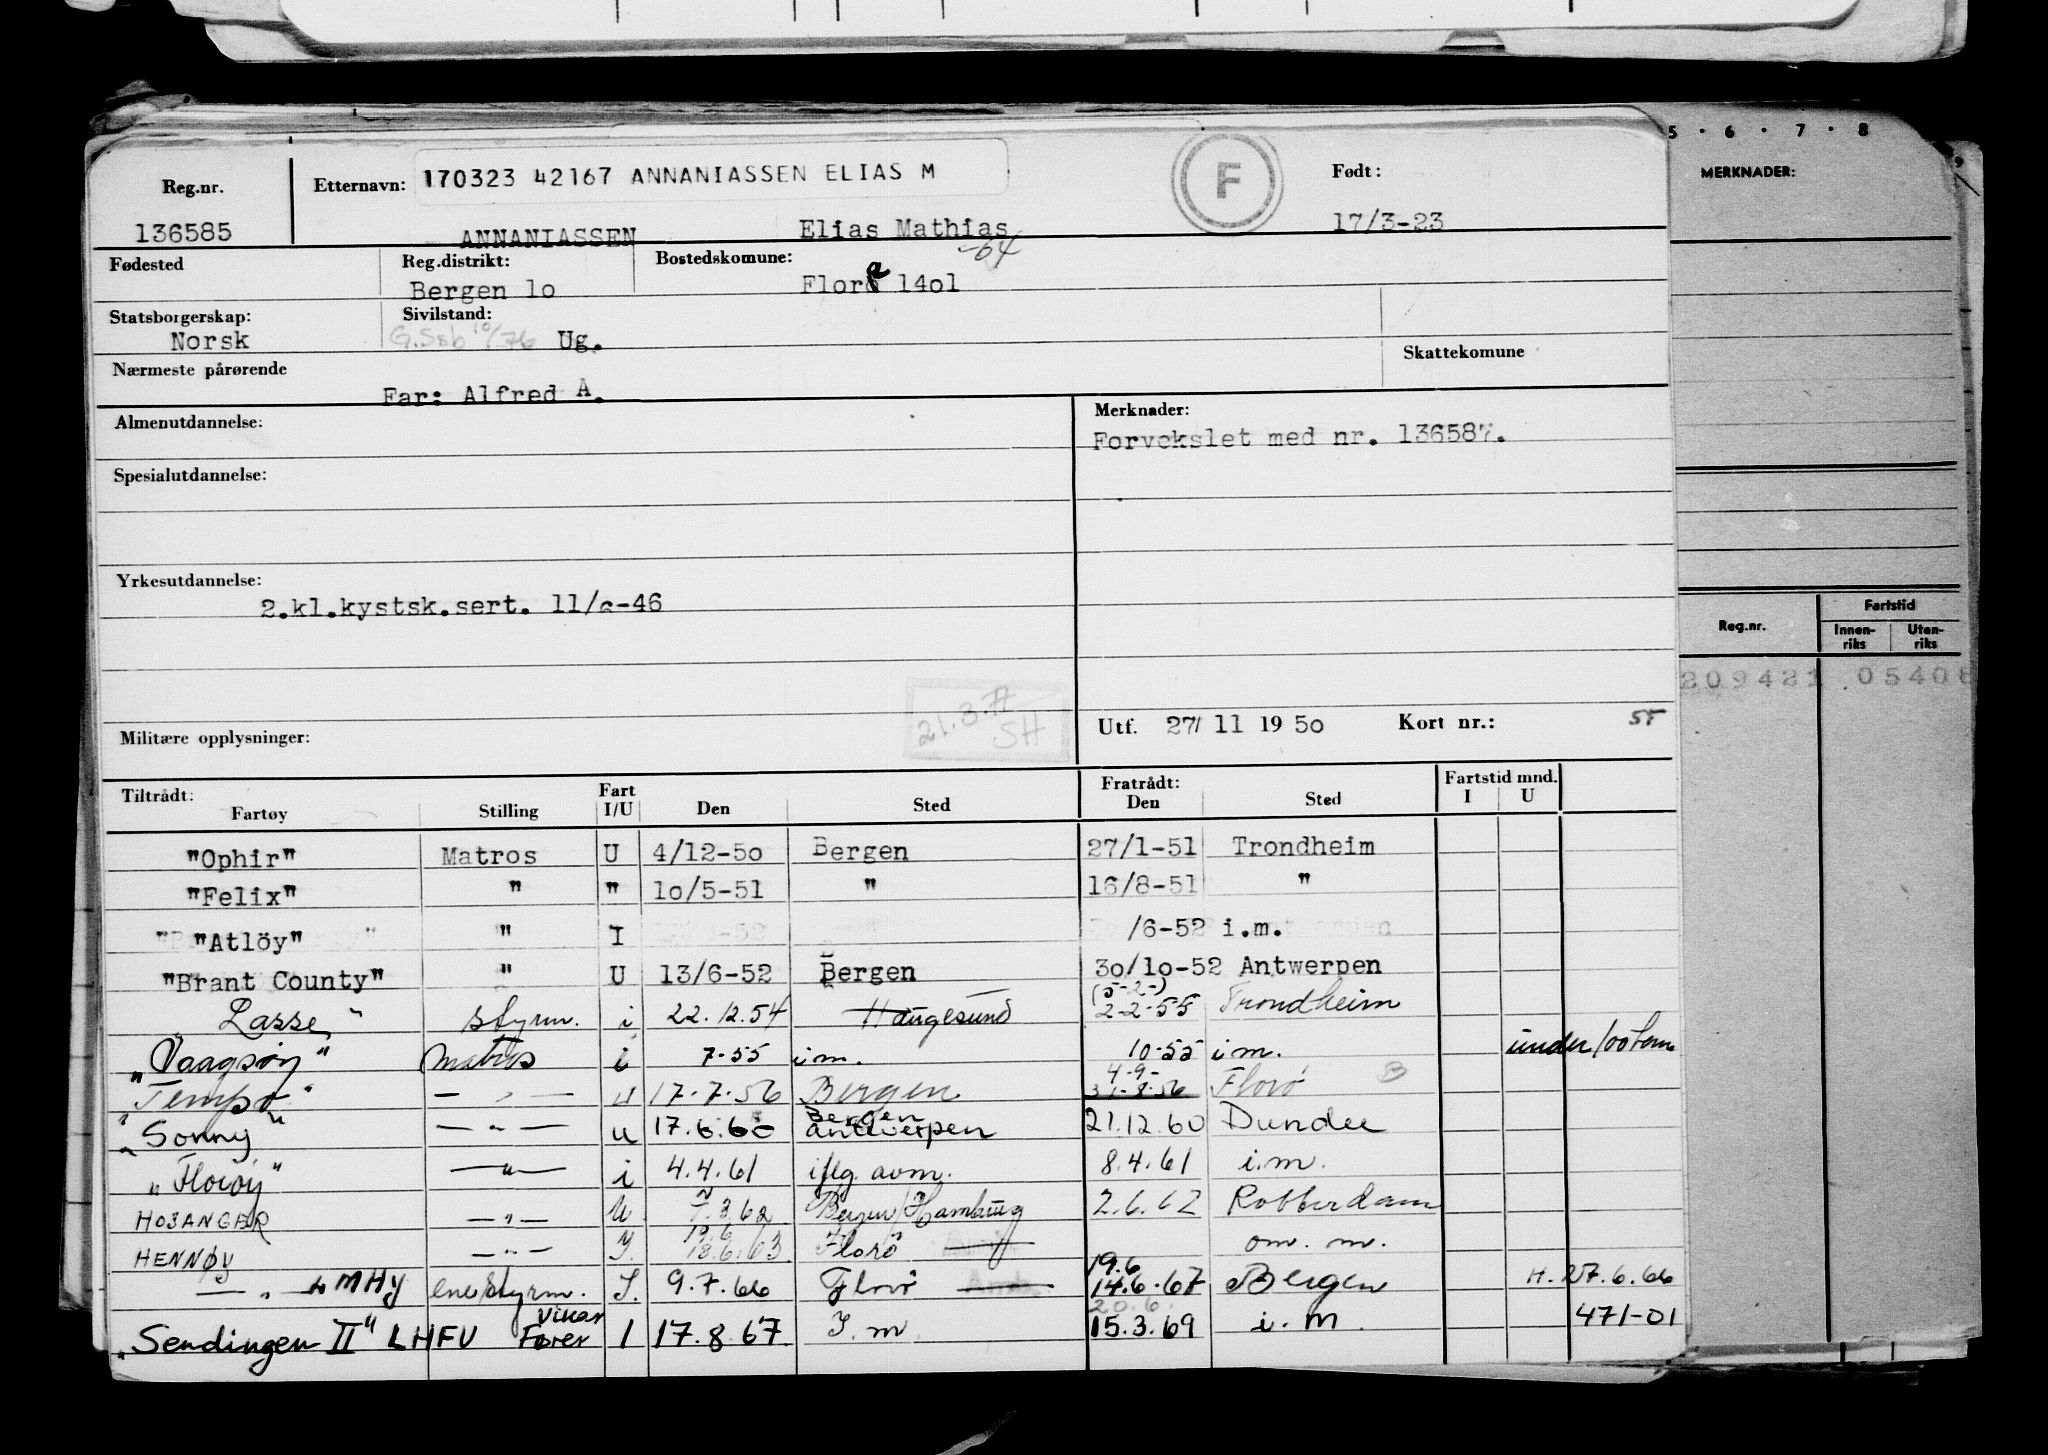 5 · 6 · 7 · 8
MERKNADER:
Reg.nr. Etternavn: 170323 42167 ANNANIASSEN ELIAS M F Født:
136585 ANNANIASSEN Elias Mathias 17/3-23
-64
Fødested Reg.distrikt: Bostedskomune:
Bergen lo Florø a 14ol
Statsborgerskap: Sivilstand:
Norsk G.Ssb 10/76 Ug.
Skattekomune
Nærmeste pårørende
Far: Alfred A.
Almenutdannelse: Merknader:
Forvekslet med nr. 136587.
Spesialutdannelse:
Yrkesutdannelse:
2.kl.kystsk.sert. 11/ -46
Reg.nr. Fartstid
Innen-riks Uten-riks
209421 05408
21.3.77
SH
Militære opplysninger: Utf. 27/ 11 19 5o Kort nr.: 55
Tiltrådt: Fart Fratrådt: Fartstid mnd.
Fartøy Stilling I/U Den Sted Den Sted I U
"Ophir" Matros U 4/12-5o Bergen 27/1-51 Trondheim
"Felix" " " 1o/5-51 " 16/8-51 "
"Atlöy" " I /6-52 i.m.
"Brant County" " U 13/6-52 Bergen 3o/1o-52 Antwerpen
(5-2-)
"Lasse" styrm. i 22.12.54 Haugesund 2-2-55 Trondheim
"Vaagsøy" Matros i 7-55 i m. 10-55 i m. under 100 tonn
4-9-
"Tempo" — " — u 17.7.56 Bergen 31-8-56 Florø B
Bergen
"Sonny" — " — u 17.6.60 Antwerpen 21.12.60 Dundee
"Florøy" — " — i 4.4.61 iflg. avm. 8.4.61 i.m.
HOSANGER — " — U 7.3.62 Bergen/Hamburg 2.6.62 Rotterdam
HENNØY — " — I. 18.6.63 Florø om. m.
19.6
— " — LMHY enestyrm. I. 9.7.66 Florø 14.6.67 Bergen H. 27.6.66
20.6.
Vikar
"Sendingen II" LHFU Fører I 17.8.67 I.m 15.3.69 i.m. 471-01